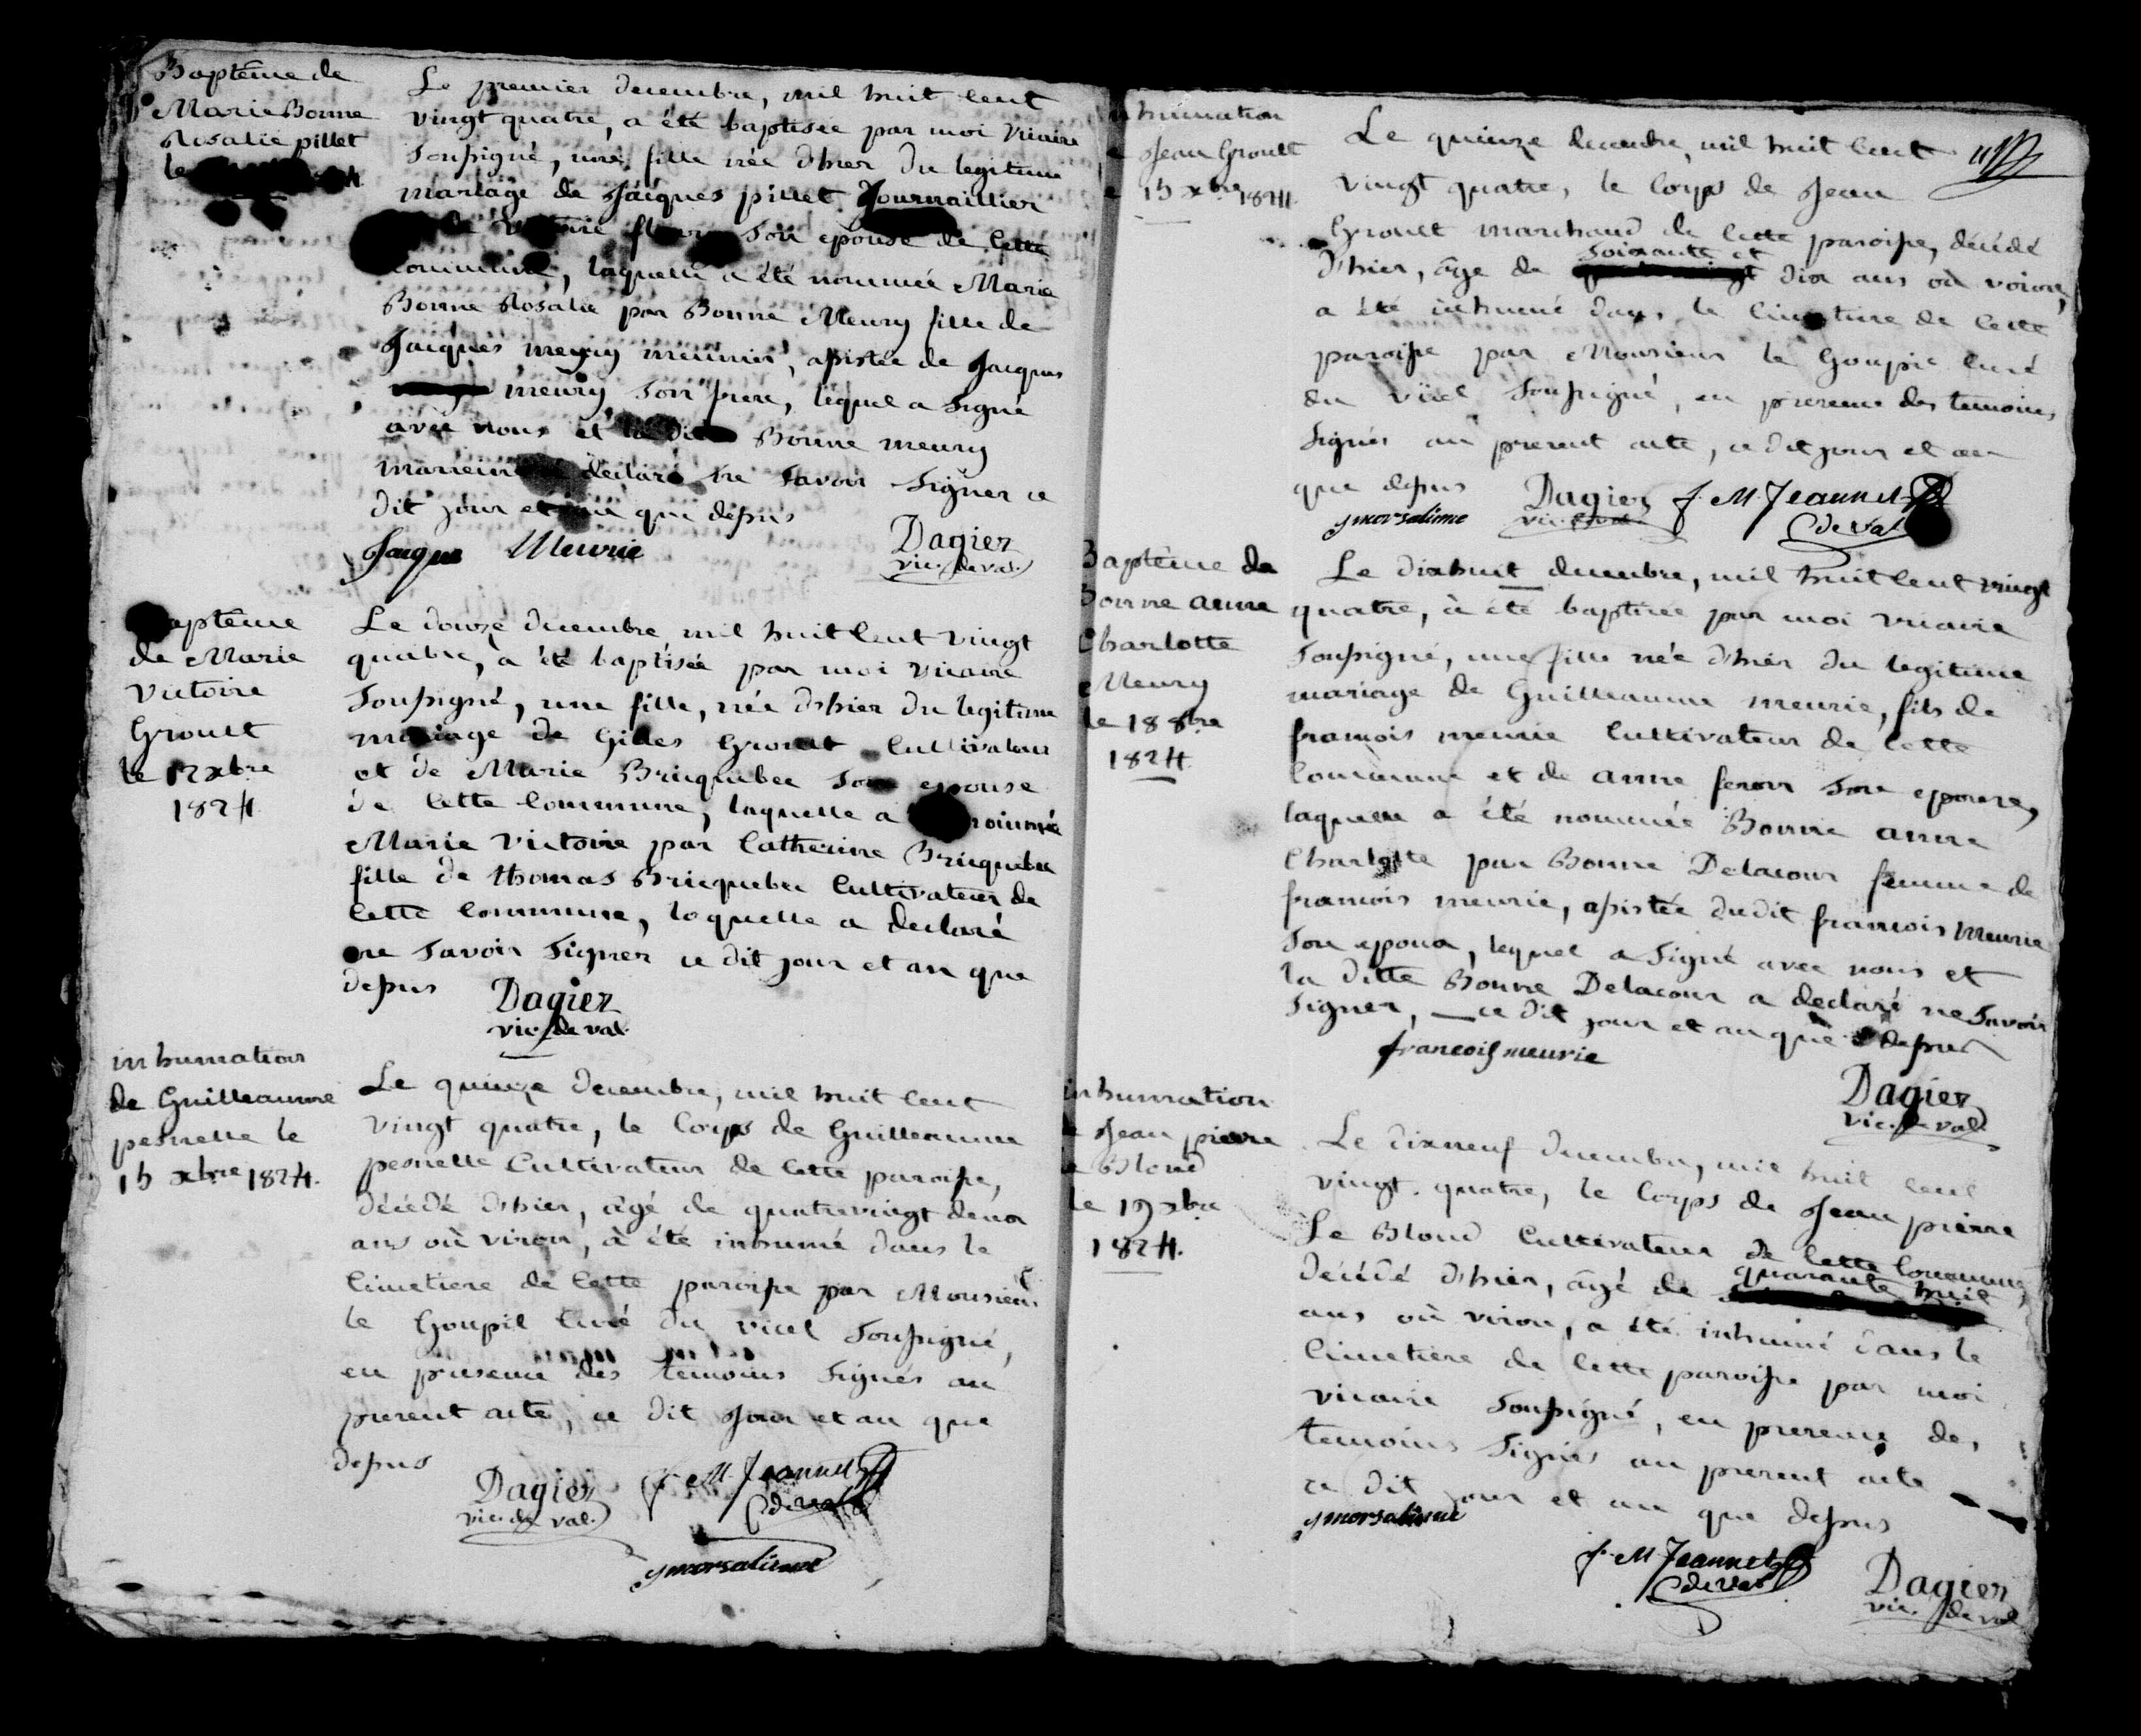 Baptême de
Marie Bonne
Rosalie pillet
le
Le premier decembre, mil huit Cent
vingt quatre, a été baptisée par moi vicaire
Soussigné, une fille née d'hier du legitime
mariage de Jacques pillet Journaillier
son epouse de Cette
commune, laquelle a été nommée Marie
Bonne Rosalie par Bonne Meury fille de
Jacques meury meunier, assistée de Jacques
meury son frere, lequel a signé
avec nous et la dite Bonne meury
marieine declaré ne savoir signer ce
dit jour et an que dessus
Jacque Meurie
Dagier
vic. de val.
Baptême
de Marie
Victoire
Groult
le 12 xbre
1824
Le douze decembre, mil huit Cent vingt
quatre, à été baptisée par moi vicaire
Soussigné, une fille, née d'hier du legitime
mariage de Gilles Groult Cultivateur
et de Marie Bricquebec son epouse
de Cette Commune, laquelle a nommée
Marie Victoire par Catherine Bricquebec
fille de thomas Bricquebec Cultivateur de
Cette Commune, laquelle a declaré
ne savoir signer ce dit jour et an que
dessus
Dagier
vic. de val.
inhumation
de Guilleaume
pesnelle le
15 xbre 1824.
Le quinze decembre, mil huit Cent
vingt quatre, le Corps de Guilleaume
pesnelle Cultivateur de Cette paroisse,
décédé d'hier, âgé de quatrevingt deux
ans où viron, à été inhumé dans le
Cimetiere de Cette paroisse par Monsieur
le Goupil Curé du vicel Soussigné,
en presence des temoins signés au
present acte, ce dit Jour et an que
dessus
Dagier
vic. de val.
f. M. Jeannet
C de val
ymorsaline
inhumation
Jean Groult
15 xbre 1824.
Le quinze decembre, mil huit Cent
vingt quatre, le Corps de Jean
Groult marchand de Cette paroisse, décédé
d'hier, âge de soixante et dix ans où viron,
a été inhumé dans le Cimetiere de Cette
paroisse par Monsieur le Goupil Curé
du vicel Soussigné, en presence des temoins
signés au present acte, ce dit jour et an
que dessus
ymorsaline
Dagier
vic. de val.
f. M. Jeannet
C de val
Baptême de
Bonne anne
Charlotte
Meury
le 18 8bre
1824
Le dixhuit decembre, mil huit Cent vingt
quatre, à été baptisée par moi vicaire
Soussigné, une fille née d'hier du legitime
mariage de Guilleaume meurie, fils de
francois meurie Cultivateur de Cette
Commune et de anne feron son epouse,
laquelle a été nommée Bonne anne
Charlotte par Bonne Delacour femme de
francois meurie, assistée dudit francois Meurie
son epoux, lequel a signé avec nous et
la ditte Bonne Delacour a declaré ne savoir
signer, ce dit jour et an que dessus
francois meurie
Dagier
vic. de val.
inhumation
Jean pierre
Blond
le 19 xbre
1824.
Le dixneuf decembre, mil huit Cent
vingt quatre, le Corps de Jean pierre
Le Blond Cultivateur de Cette Commune,
décédé d'hier, âgé de quarante huit
ans où viron, a été inhumé dans le
Cimetiere de Cette paroisse par moi
vicaire Soussigné, en presence des
temoins signés au present acte
ce dit jour et an que dessus
ymorsaline
f. M. Jeannet
C de val
Dagier
vic. de val